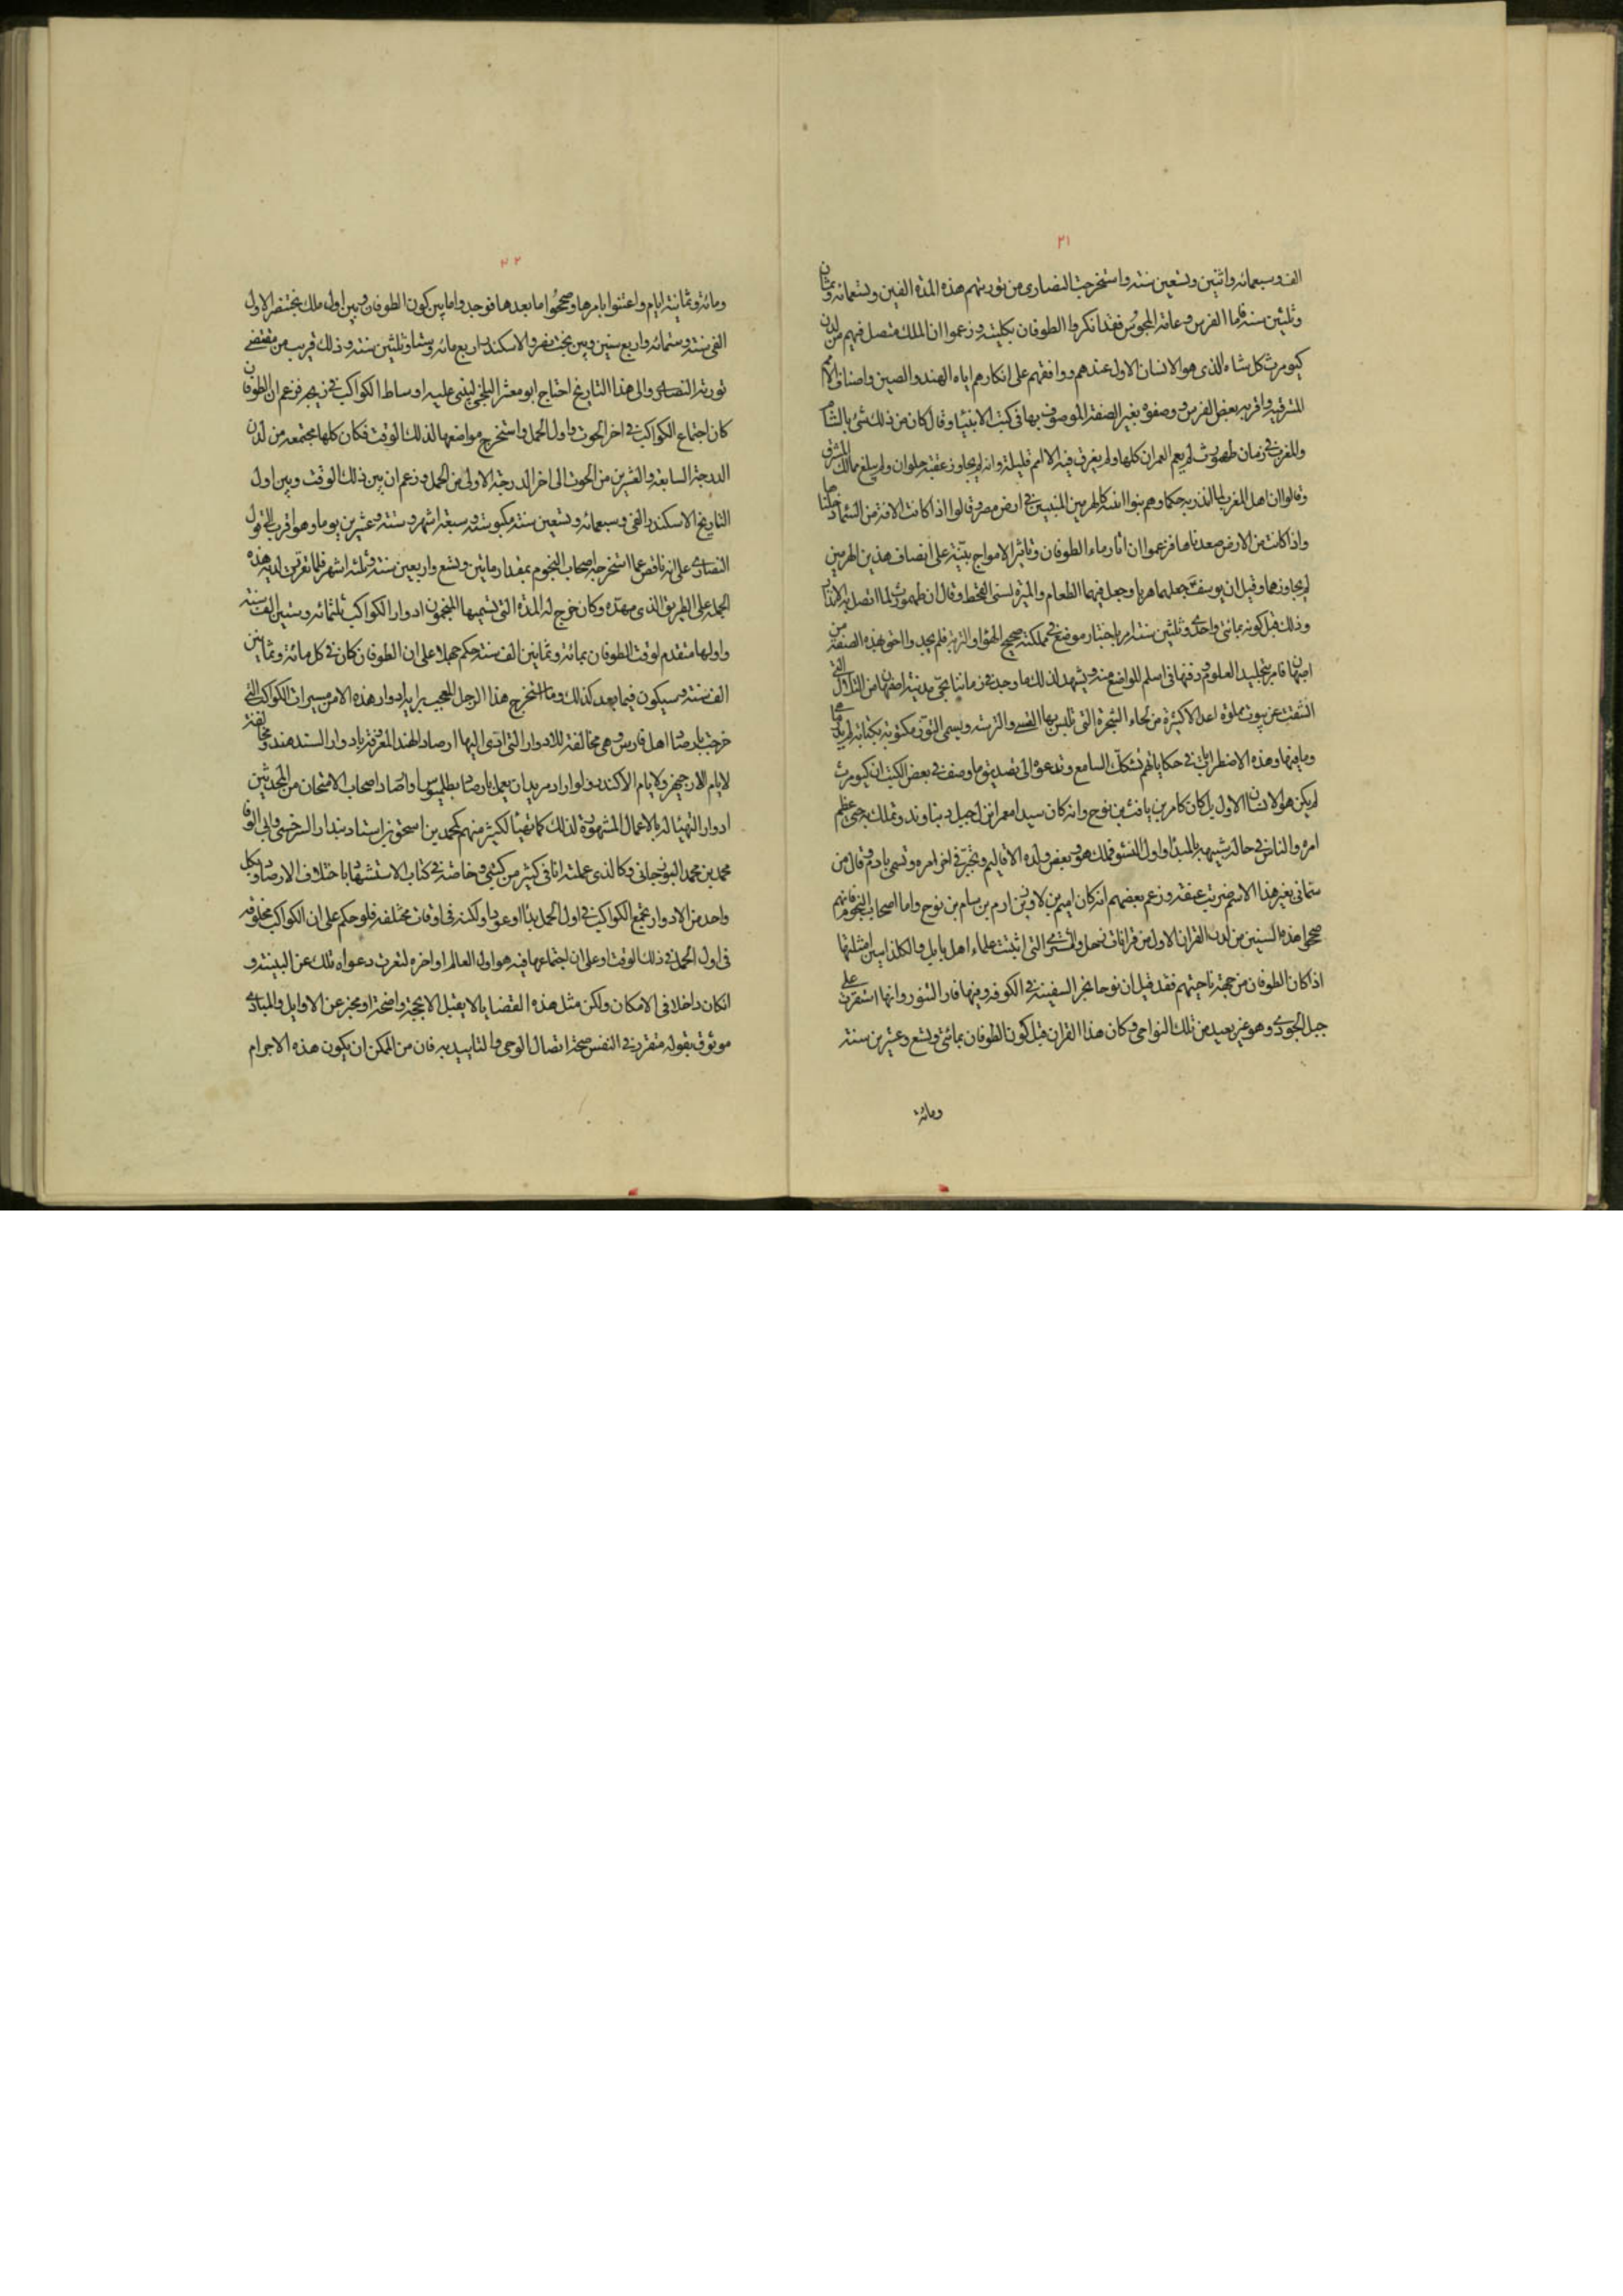 ٢١
الف وسبعمائة واثنين وتسعين سنة واستخرجت النصارى من توريتهم هذه المدة الفين وتسعمائة وثمان
وثلثين سنة فاما الفرس وعامة المجوس فقد انكروا الطوفان بكليته وزعموا ان الملك متصل فيهم من لدن
كيومرث كل شاه الذى هو الانسان الاول عندهم ووافقهم على انكارهم اياه الهند والصين واصناف الامم
المشرقية واقر به بعض الفرس ووصفوه بغير الصفة الموصوف بها فى كتب الانبياء وقال كان من ذلك شئ بالشام
والمغرب فى زمان طهمورث لم يعم العمران كلها ولم يغرق فيه الا امم قليلة وانه لم يجاوز عقبة حلوان ولم يبلغ ممالك المشرق
وقالوا ان اهل المغرب لما انذر به حكماوهم بنوا ابنية كالهرمين المبنيين فى ارض مصر وقالوا اذا كانت الافة من السماء دخلناها
واذا كانت من الارض صعدناها فزعموا ان اثار ماء الطوفان وتاثير الامواج بينة على انصاف هذين الهرمين
لم يجاوزهما وقيل ان يوسف جعلهما هربا وجعل فيهما الطعام والميرة لسنى القحط وقال ان طهمورث لما اتصل به الانذار
وذلك قبل كونه بمائتى واحدى وثلثين سنة امر باختيار موضع فى مملكته صحيح الهواء والتربة فلم يجدوا احق بهذه الصفة من
اصبهان فامر بتجليد العلوم ودفنها فى اسلم المواضع منه ويشهد لذلك ما وجد فى زماننا بجى مدينة اصفهان من التلال التى
انشقت عن بيوت مملوة اعدالا كثيرة من لحاء الشجرة التى تلبس بها القسى والترسة ويسمى التوز مكتوبة بكتابة لم يدر ما هى
وما فيها وهذه الاضطرابات فى حكاياتهم تشكك السامع وتدعو الى تصديق ما وصف فى بعض الكتب ان كيومرث
لم يكن هو الانسان الاول بل كان كامر بن يافث بن نوح وانه كان سيدا معمرا نزل جبل دنباوند وتملك به حتى عظم
امره والناس فى حالة شبيهة بالمبدا واول النشو فملك هو وبعض ولده الاقاليم وتجبر فى اخر امره وتسمى بادم وقال من
سمانى بغير هذا الاسم ضربت عنقه وزعم بعضهم انه كان اميم بن لاوذ بن ارم بن سام بن نوح واما اصحاب النجوم فانهم
صححوا هذه السنين من لدن القران الاول من قرانات زحل والمشترى التى اثبتت علماء اهل بابل والكلدانيين امثلتها
اذ كان الطوفان من جهة ناحيتهم فقد قيل ان نوحا نجر السفينة فى الكوفة وفيها فار التنور وانها استقرت على
جبل الجودى وهو غير بعيد من تلك النواحى وكان هذا القران قبل كون الطوفان بمائتى وتسع وعشرين سنة
ومائة
٢٢
ومائة وثمانية ايام واعتنوا بامرها وصححوا ما بعدها فوجدوا ما بين كون الطوفان وبين اول ملك بختنصر الاول
الفى سنة وستمائة واربع سنين وبين بختنصر والاسكندر اربع مائة وستا وثلثين سنة وذلك قريب من مقتضى
تورية النصارى والى هذا التاريخ احتاج ابو معشر البلخى ليبنى عليه اوساط الكواكب فى زيجه فزعم ان الطوفان
كان اجتماع الكواكب فى اخر الحوت واول الحمل واستخرج مواضعها لذلك الوقت فكان كلها مجتمعة من لدن
الدرجة السابعة والعشرين من الحوت الى اخر الدرجة الاولى من الحمل وزعم ان بين ذلك الوقت وبين اول
التاريخ الاسكندر الفى وسبعمائة وتسعين سنة مكبوسة وسبعة اشهر وستة وعشرين يوما وهو اقرب الى قول
النصارى على انه ناقص عما استخرجه اصحاب النجوم بمقدار مائتين وتسع واربعين سنة وثلثة اشهر فلما تقرر لديه هذه
الجملة على الطريق الذى مهده وكان خرج له المدة التى تسميها المنجمون ادوار الكواكب ثلثمائة وستين الف سنة
واولها متقدم لوقت الطوفان بمائة وثمانين الف سنة حكم جهلا على ان الطوفان كان فى كل مائة وثمانين
الف سنة وسيكون فيما بعد كذلك وما استخرج هذا الرجل المعجب برايه ادوار هذه الا من مسيرات الكواكب التى
خرجت بارصاد اهل فارس وهى مخالفة للادوار التى ادى اليها ارصاد الهند المعروفة بادوار السندهند ومخالفة
لايام الارجبهر ولايام الاركند ولو اراد مريد ان يعمل بارصاد بطلميوس او ارصاد اصحاب الامتحان من المحدثين
ادوارا لتهيأ له بالاعمال المشهورة لذلك كما تهيأ لكثير منهم كمحمد بن اسحق بن استاد بندار السرخسى وابى الوفا
محمد بن محمد البوزجانى وكالذى عملته انا فى كثير من كتبى وخاصة فى كتاب الاستشهاد باختلاف الارصاد وبكل
واحد من الادوار تجتمع الكواكب فى اول الحمل بدءا وعودا ولكنه فى اوقات مختلفة فلو حكم على ان الكواكب مخلوقة
فى اول الحمل فى ذلك الوقت او على ان اجتماعها فيه هو اول العالم او اخره لتعرت دعواه تلك عن البينة و
ان كان داخلا فى الامكان ولكن مثل هذه القضايا لا يقبل الا بحجة واضحة او مخبر عن الاوايل والمبادى
موثوق بقوله متقرر فى النفس صحة اتصال الوحى والتاييد به فان من الممكن ان يكون هذه الاجرام